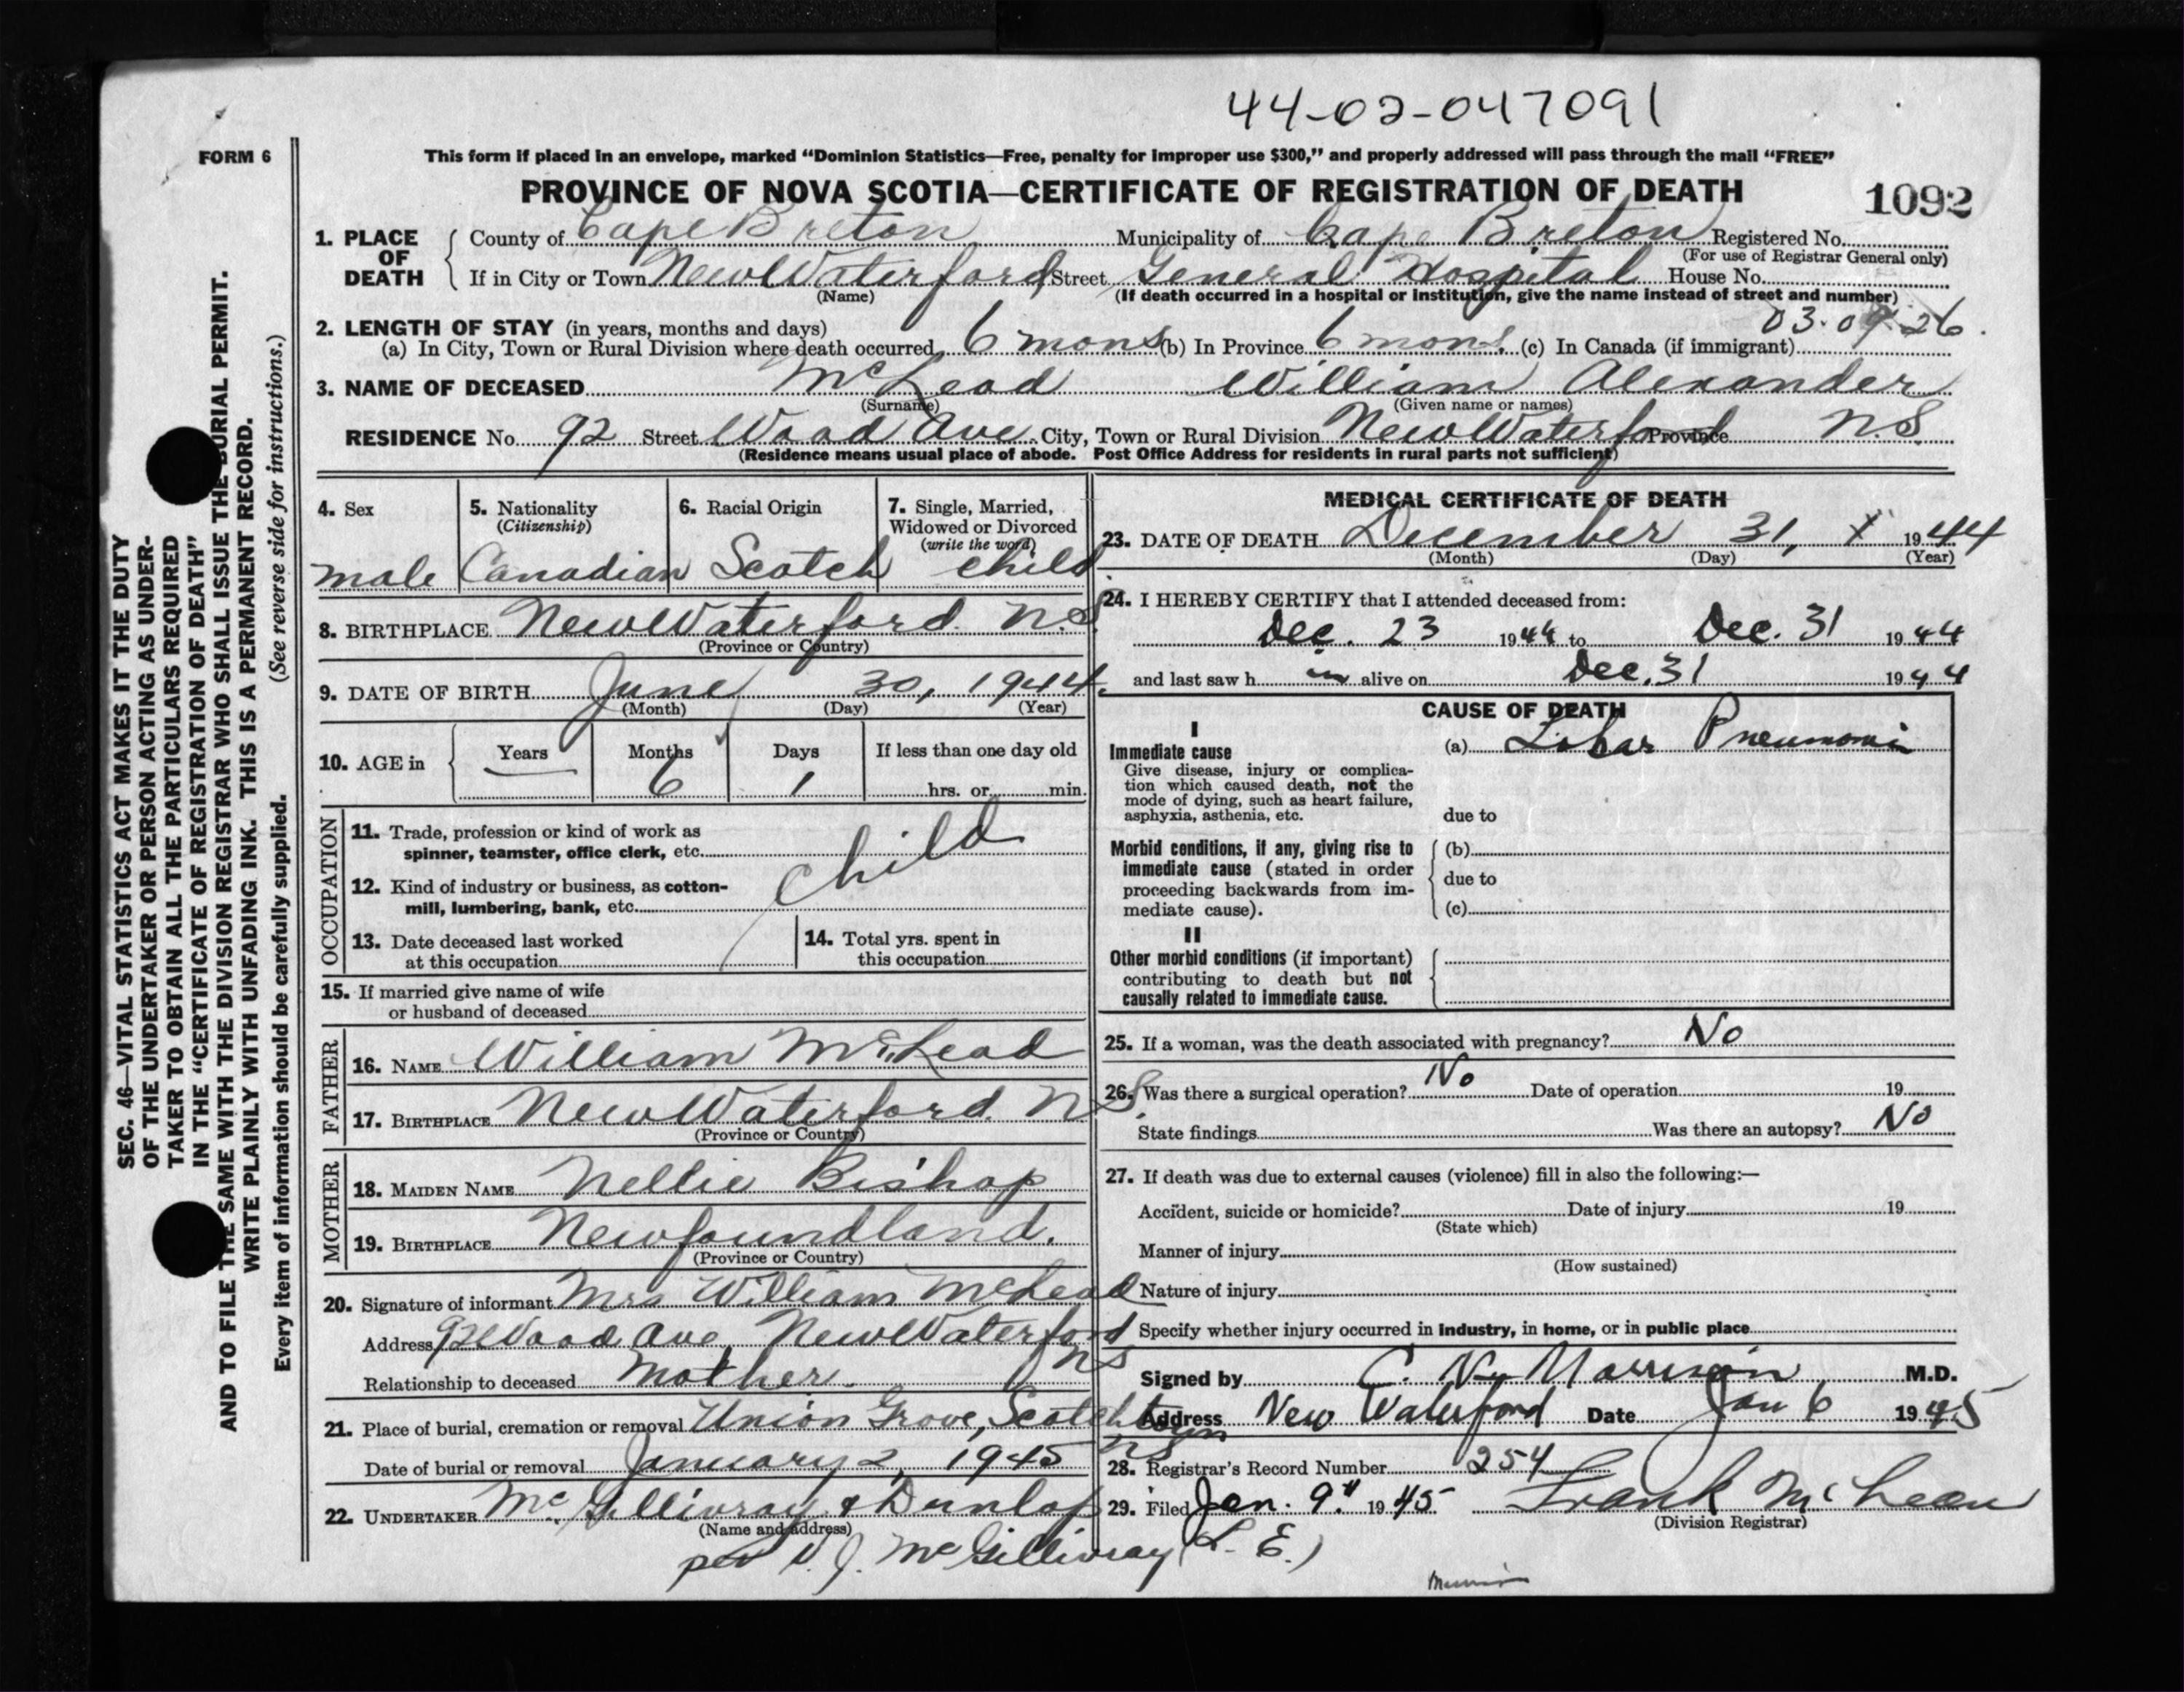 44-02-047091
FORM 6
This form if placed in an envelope, marked "Dominion Statistics—Free, penalty for improper use $300," and properly addressed will pass through the mail "FREE"
PROVINCE OF NOVA SCOTIA—CERTIFICATE OF REGISTRATION OF DEATH
1092
1. PLACE OF DEATH County of Cape Breton Municipality of Cape Breton Registered No.
(For use of Registrar General only)
If in City or Town New Waterford Street General Hospital House No.
(Name) (If death occurred in a hospital or institution, give the name instead of street and number)
2. LENGTH OF STAY (in years, months and days) 03.09.26.
(a) In City, Town or Rural Division where death occurred 6 mons (b) In Province 6 mons. (c) In Canada (if immigrant)
3. NAME OF DECEASED McLeod William Alexander
(Surname) (Given name or names)
RESIDENCE No. 92 Street Wood Ave. City, Town or Rural Division New Waterford Province N.S.
(Residence means usual place of abode. Post Office Address for residents in rural parts not sufficient)
4. Sex
male
5. Nationality
(Citizenship)
Canadian
6. Racial Origin
Scotch
7. Single, Married, Widowed or Divorced
(write the word)
child
8. BIRTHPLACE New Waterford N.S.
(Province or Country)
9. DATE OF BIRTH June 30, 1944.
(Month) (Day) (Year)
10. AGE in Years — Months 6 Days 1 If less than one day old
hrs. or min.
OCCUPATION
11. Trade, profession or kind of work as
spinner, teamster, office clerk, etc.
child
12. Kind of industry or business, as cotton-
mill, lumbering, bank, etc.
13. Date deceased last worked
at this occupation
14. Total yrs. spent in
this occupation
15. If married give name of wife
or husband of deceased
FATHER
16. NAME William McLeod
17. BIRTHPLACE New Waterford. N S
(Province or Country)
MOTHER
18. MAIDEN NAME Nellie Bishop
19. BIRTHPLACE Newfoundland.
(Province or Country)
20. Signature of informant Mrs William McLeod
Address 92 Wood Ave New Waterford
NS
Relationship to deceased Mother.
21. Place of burial, cremation or removal Union Grove, Scotchtown
NS
Date of burial or removal January 2, 1945
22. UNDERTAKER McGillivray & Dunlop
(Name and address)
per D. J. McGillivray (L. E.)
MEDICAL CERTIFICATE OF DEATH
23. DATE OF DEATH December 31, 1944
(Month) (Day) (Year)
24. I HEREBY CERTIFY that I attended deceased from:
Dec. 23 1944 to Dec. 31 1944
and last saw h im alive on Dec. 31 1944
CAUSE OF DEATH
I
Immediate cause
(a) Lobar Pneumonia
Give disease, injury or complica-
tion which caused death, not the
mode of dying, such as heart failure,
asphyxia, asthenia, etc.
due to
Morbid conditions, if any, giving rise to
immediate cause (stated in order
proceeding backwards from im-
mediate cause).
(b)
due to
(c)
II
Other morbid conditions (if important)
contributing to death but not
causally related to immediate cause.
25. If a woman, was the death associated with pregnancy? No
26. Was there a surgical operation? No Date of operation 19
State findings Was there an autopsy? No
27. If death was due to external causes (violence) fill in also the following:—
Accident, suicide or homicide? Date of injury 19
(State which)
Manner of injury
(How sustained)
Nature of injury
Specify whether injury occurred in industry, in home, or in public place
Signed by C. N. Morrison M.D.
Address New Waterford Date Jan 6 1945
28. Registrar's Record Number 254
29. Filed Jan. 9" 1945 Frank McLean
(Division Registrar)
SEC. 46—VITAL STATISTICS ACT MAKES IT THE DUTY
OF THE UNDERTAKER OR PERSON ACTING AS UNDER-
TAKER TO OBTAIN ALL THE PARTICULARS REQUIRED
IN THE "CERTIFICATE OF REGISTRATION OF DEATH"
AND TO FILE THE SAME WITH THE DIVISION REGISTRAR WHO SHALL ISSUE THE BURIAL PERMIT.
WRITE PLAINLY WITH UNFADING INK. THIS IS A PERMANENT RECORD.
Every item of information should be carefully supplied. (See reverse side for instructions.)